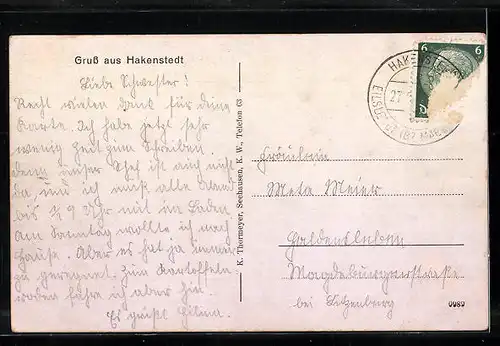 Gruß aus Hakenstedt
Liebe Schwester!
Recht vielen Dank für deine
Karte. Ich habe jetzt sehr
wenig Zeit zum Schreiben
denn unser Chef ist auch nicht
da, und ich muß alle Abend
bis ½ 9 Uhr mit im Laden.
Am Sonntag wollte ich nach
Hause. Aber es hat ja immer
zu geregnet. Zum Kartoffeln
roden fahre ich aber hin.
Es grüßt
K. Thormeyer, Seehausen, K. W., Telefon 63
HAKENSTEDT
27
6
6
Fräulein
Meta Meier
Haldensleben
Magdeburgerstraße
bei
0989